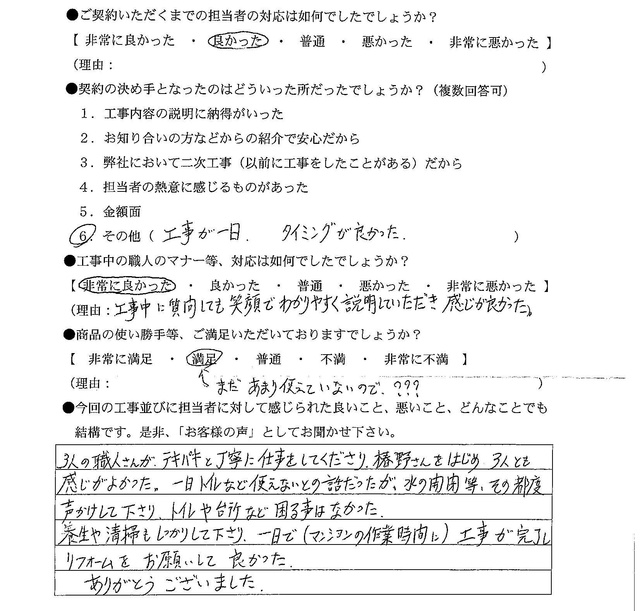 ●ご契約いただくまでの担当者の対応は如何でしたでしょうか？
【 非常に良かった ・ 良かった ・ 普通 ・ 悪かった ・ 非常に悪かった 】
（理由： ）
●契約の決め手となったのはどういった所だったでしょうか？（複数回答可）
１．工事内容の説明に納得がいった
２．お知り合いの方などからの紹介で安心だから
３．弊社において二次工事（以前に工事をしたことがある）だから
４．担当者の熱意に感じるものがあった
５．金額面
６．その他（ 工事が一日. タイミングが良かった. ）
●工事中の職人のマナー等、対応は如何でしたでしょうか？
【 非常に良かった ・ 良かった ・ 普通 ・ 悪かった ・ 非常に悪かった 】
（理由：工事中に質向しても笑顔でわかりやすく説明していただき 感じが良かった。
●商品の使い勝手等、ご満足いただいておりますでしょうか？
【 非常に満足 ・ 満足 ・ 普通 ・ 不満 ・ 非常に不満 】
（理由： まだ あまり使えていないので、??? ）
●今回の工事並びに担当者に対して感じられた良いこと、悪いこと、どんなことでも
結構です。是非、「お客様の声」としてお聞かせ下さい。
3人の職人さんが、テキパキと丁寧に仕事をしてくださり、椿野さんをはじめ 3人とも
感じがよかった。一日トイレなど使えないとの話だったが、水の開閉等、その都度
声かけして下さり、トイレや台所など 困る事はなかった.
養生や清掃も しっかりして下さり、一日で（マンションの作業時間に）工事が完了し
リフォームを お願いして 良かった.
ありがとう ございました.